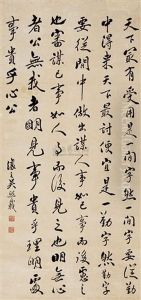 天下最有受用是一閒字然閒字要從勤
中得來天下最討便宜是一勤字然勤字
要從閒中做出謀人事如己事而後慮之
也審謀己事如人事而後見之也明無心
者公無我者明見事貴乎理明處
事貴乎心公
吳熙載